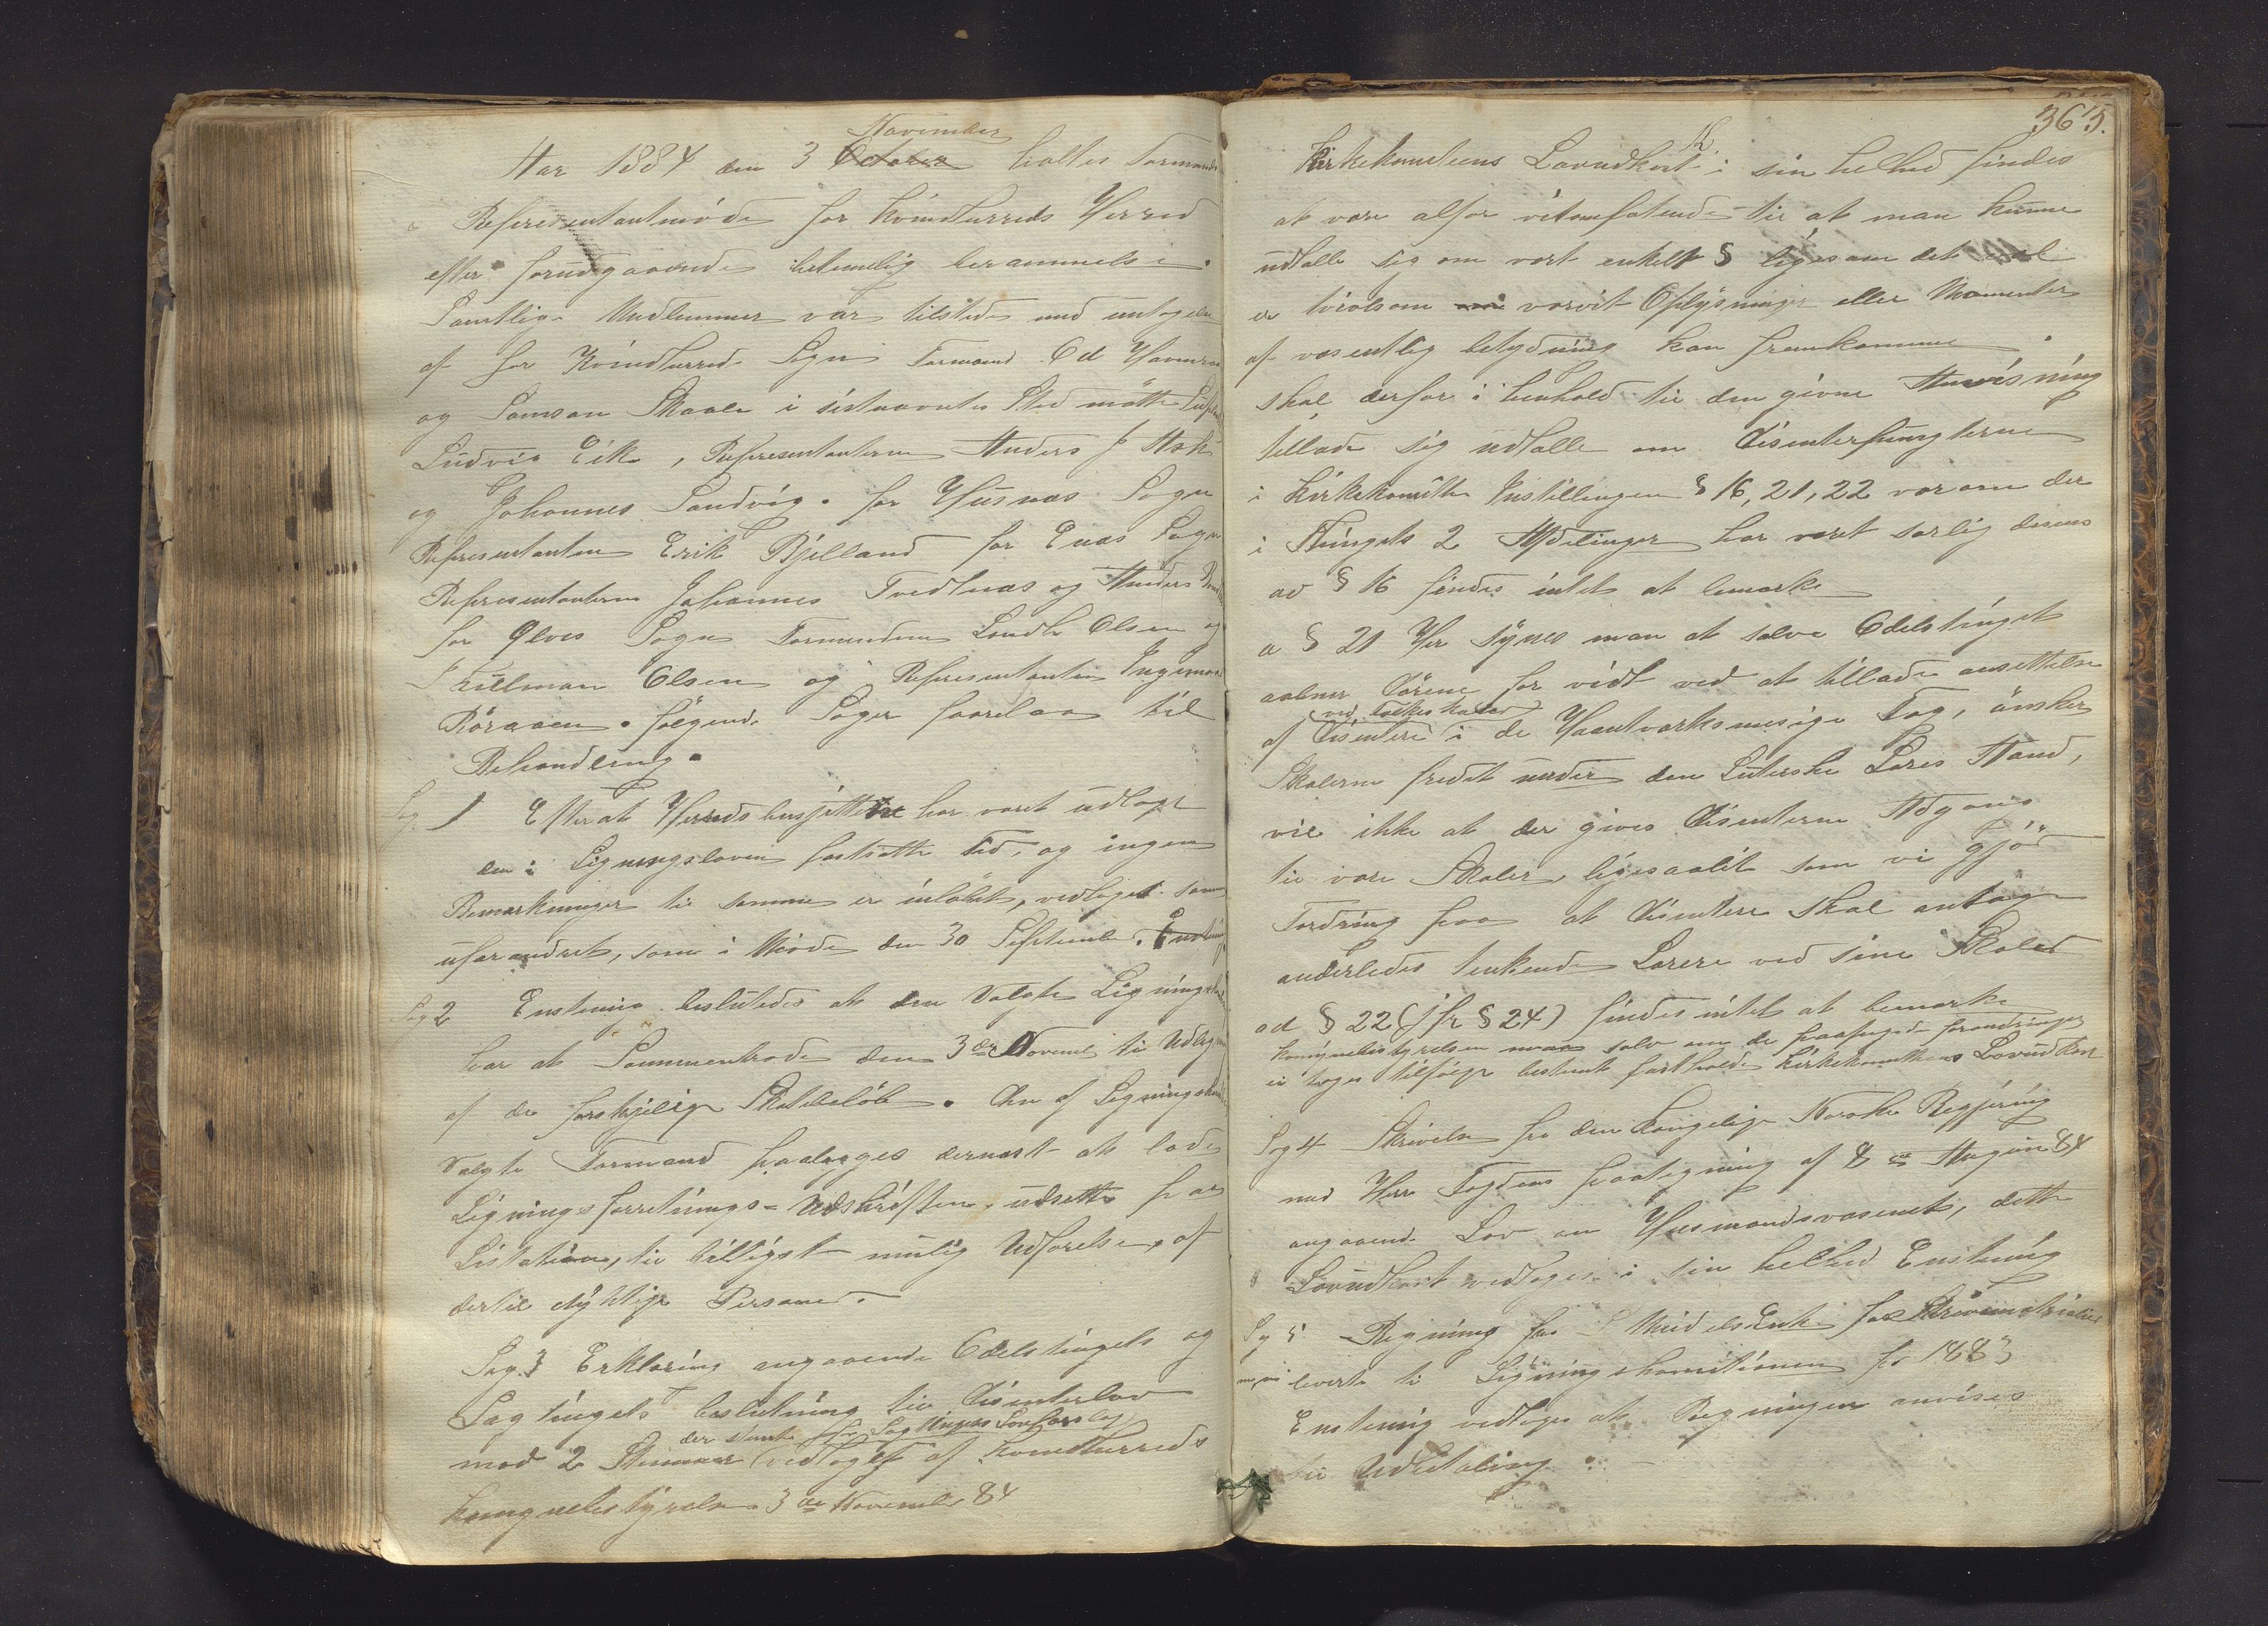 November
Aar 1884 den 3 October holtes Formands
Representantmöde for Kvindherreds Herred
efter forudgaaende betimelig berammelse.
Samtlige Medlemmer var tilstede med untagelse
af for Kvindherred Sogn Formand Od Havneraas
og Samson Skaale i sistnævntes Sted mötte Supleant
Ludvig Eik, Representanterne Anders J Ask
og Johannes Sandvig. for Husnæs Sogn
Representanten Erik Bjelland for Enæs Sogn
Representanterne Johannes Tvedtnæs og Anders
for Ølves Sogn Formændene Londte Olsen og
Skulman Olsen og Representanten Ingemar
Röraaen. følgende Sager forelaa til
Behandling.
Sag. 1 Efter at Herreds busjettene har været udlagt
den i Ligningsloven fastsatte Tid, og ingen
Bemærkninger til samme er inlöbet, vedtoges samme
uforandret, som i Möde den 30 September. Enstemig
Sag 2 Enstemig beslutedes at den Valgte Ligningskom
har at Sammentræde den 3de Novemb til Udlign
af de forskjelige Skattebelöb. Den af Ligningskom
Valgte Formand paalægges dernæst at lade
Ligningsforretnings-Udskriften, udsette paa
Listation, til billigst mulig Udförelse, af
dertil dygtige Personer.
Sag. 3 Erklæring angaaende Odelstingets og
Lagtingets beslutning til Disenterlov
der stemte for Lagtingets Lovforslag
mod 2 Stemmer vedtaget af Kvindherreds
komunebestyrelse 3de November 84
365.
Kirkekomiteens Lovudkast i sin helhed findes
at være alfor vitomfatende til at man kunne
udtalle sig om vært enkelt § ligesom det vel
er tvivlsom vorvit Oplysninger eller Momenter
af væsentlig betydning kan fremkomme.
skal derfor i henhold til den givne Anvisning
tillade sig udtalle om Disenterpungterne
i Kirkekomitte Instillingen § 16, 21, 22 vorom der
i Tingets 2 Afdelinger har været særlig disens
ad § 16 findes intet at bemærke
a § 21 Her synes man at selve Odelstinget
aabner Dörene for vidt ved at tillade ansettelse
ved Folkeskolen
af Disentere i de Haantværksmesige Fag, ønsker
Skolerne fredet under den Luterske Læres Aand,
vil ikke at der gives Disenterne Adgang
til vore Skoler, ligesaalit som vi gjör
Fordring paa at Disentere skal antage
anderledes tenkende Lærere ved sine Skoler
ad § 22 (jfr § 24) findes intet at bemærke
komunebestyrelsen maa selv om de paapegede forandringer
ei toges tilfölge bestemt fastholde Kirkekomitteens Lovudkast
Sag 4 Skrivelse fra den Kongelige Norske Regjering
med Herr Fogdens paategning af 8de August 84
angaaende Lov om Husmandsvæsenet, dette
Lovudkast vedtages i sin helhed Enstemig
Sag 5 Regning fra S Midelsenk for Skrivematrialier
leverte til Ligningskomitionen for 1883
Enstemig vedtoges at Regningen anvises
til Udbetaling.